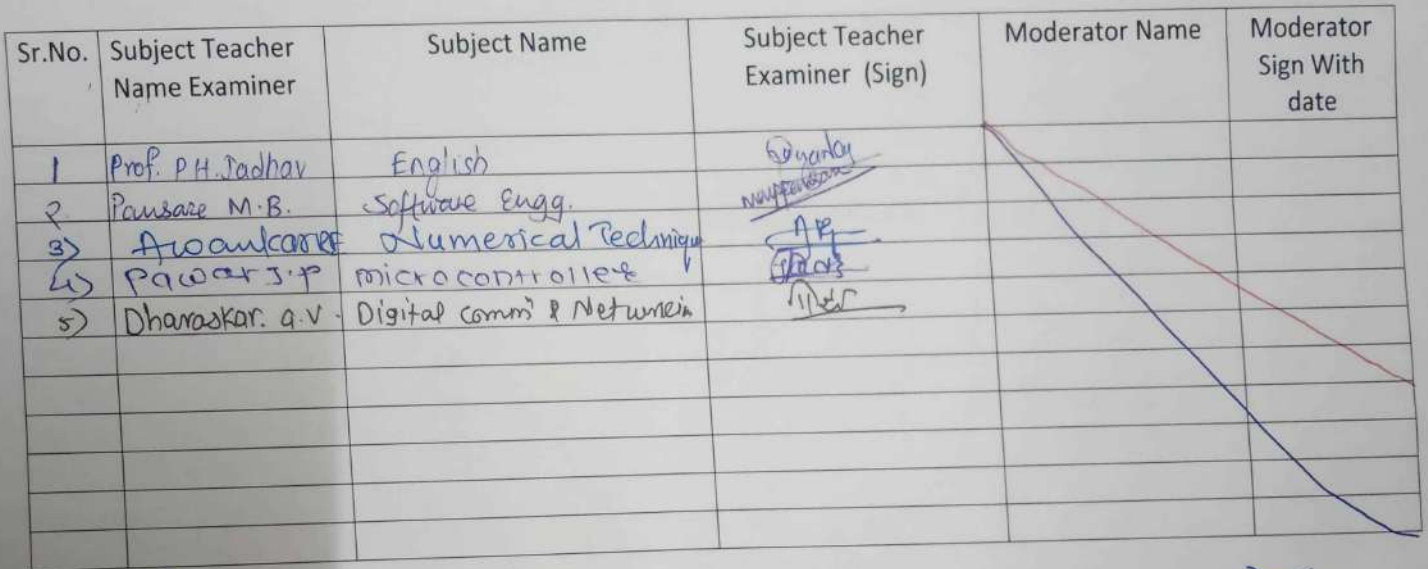 Sr.No. Subject Teacher Name Examiner Subject Name Subject Teacher Examiner (Sign) Moderator Name Moderator Sign With date
1 Prof. P.H. Jadhav English
2. Pansare M.B. Software Engg.
3) Numerical Technique
4) Pawar J.P microcontroller
5) Dharaskar. a.v. Digital commn &